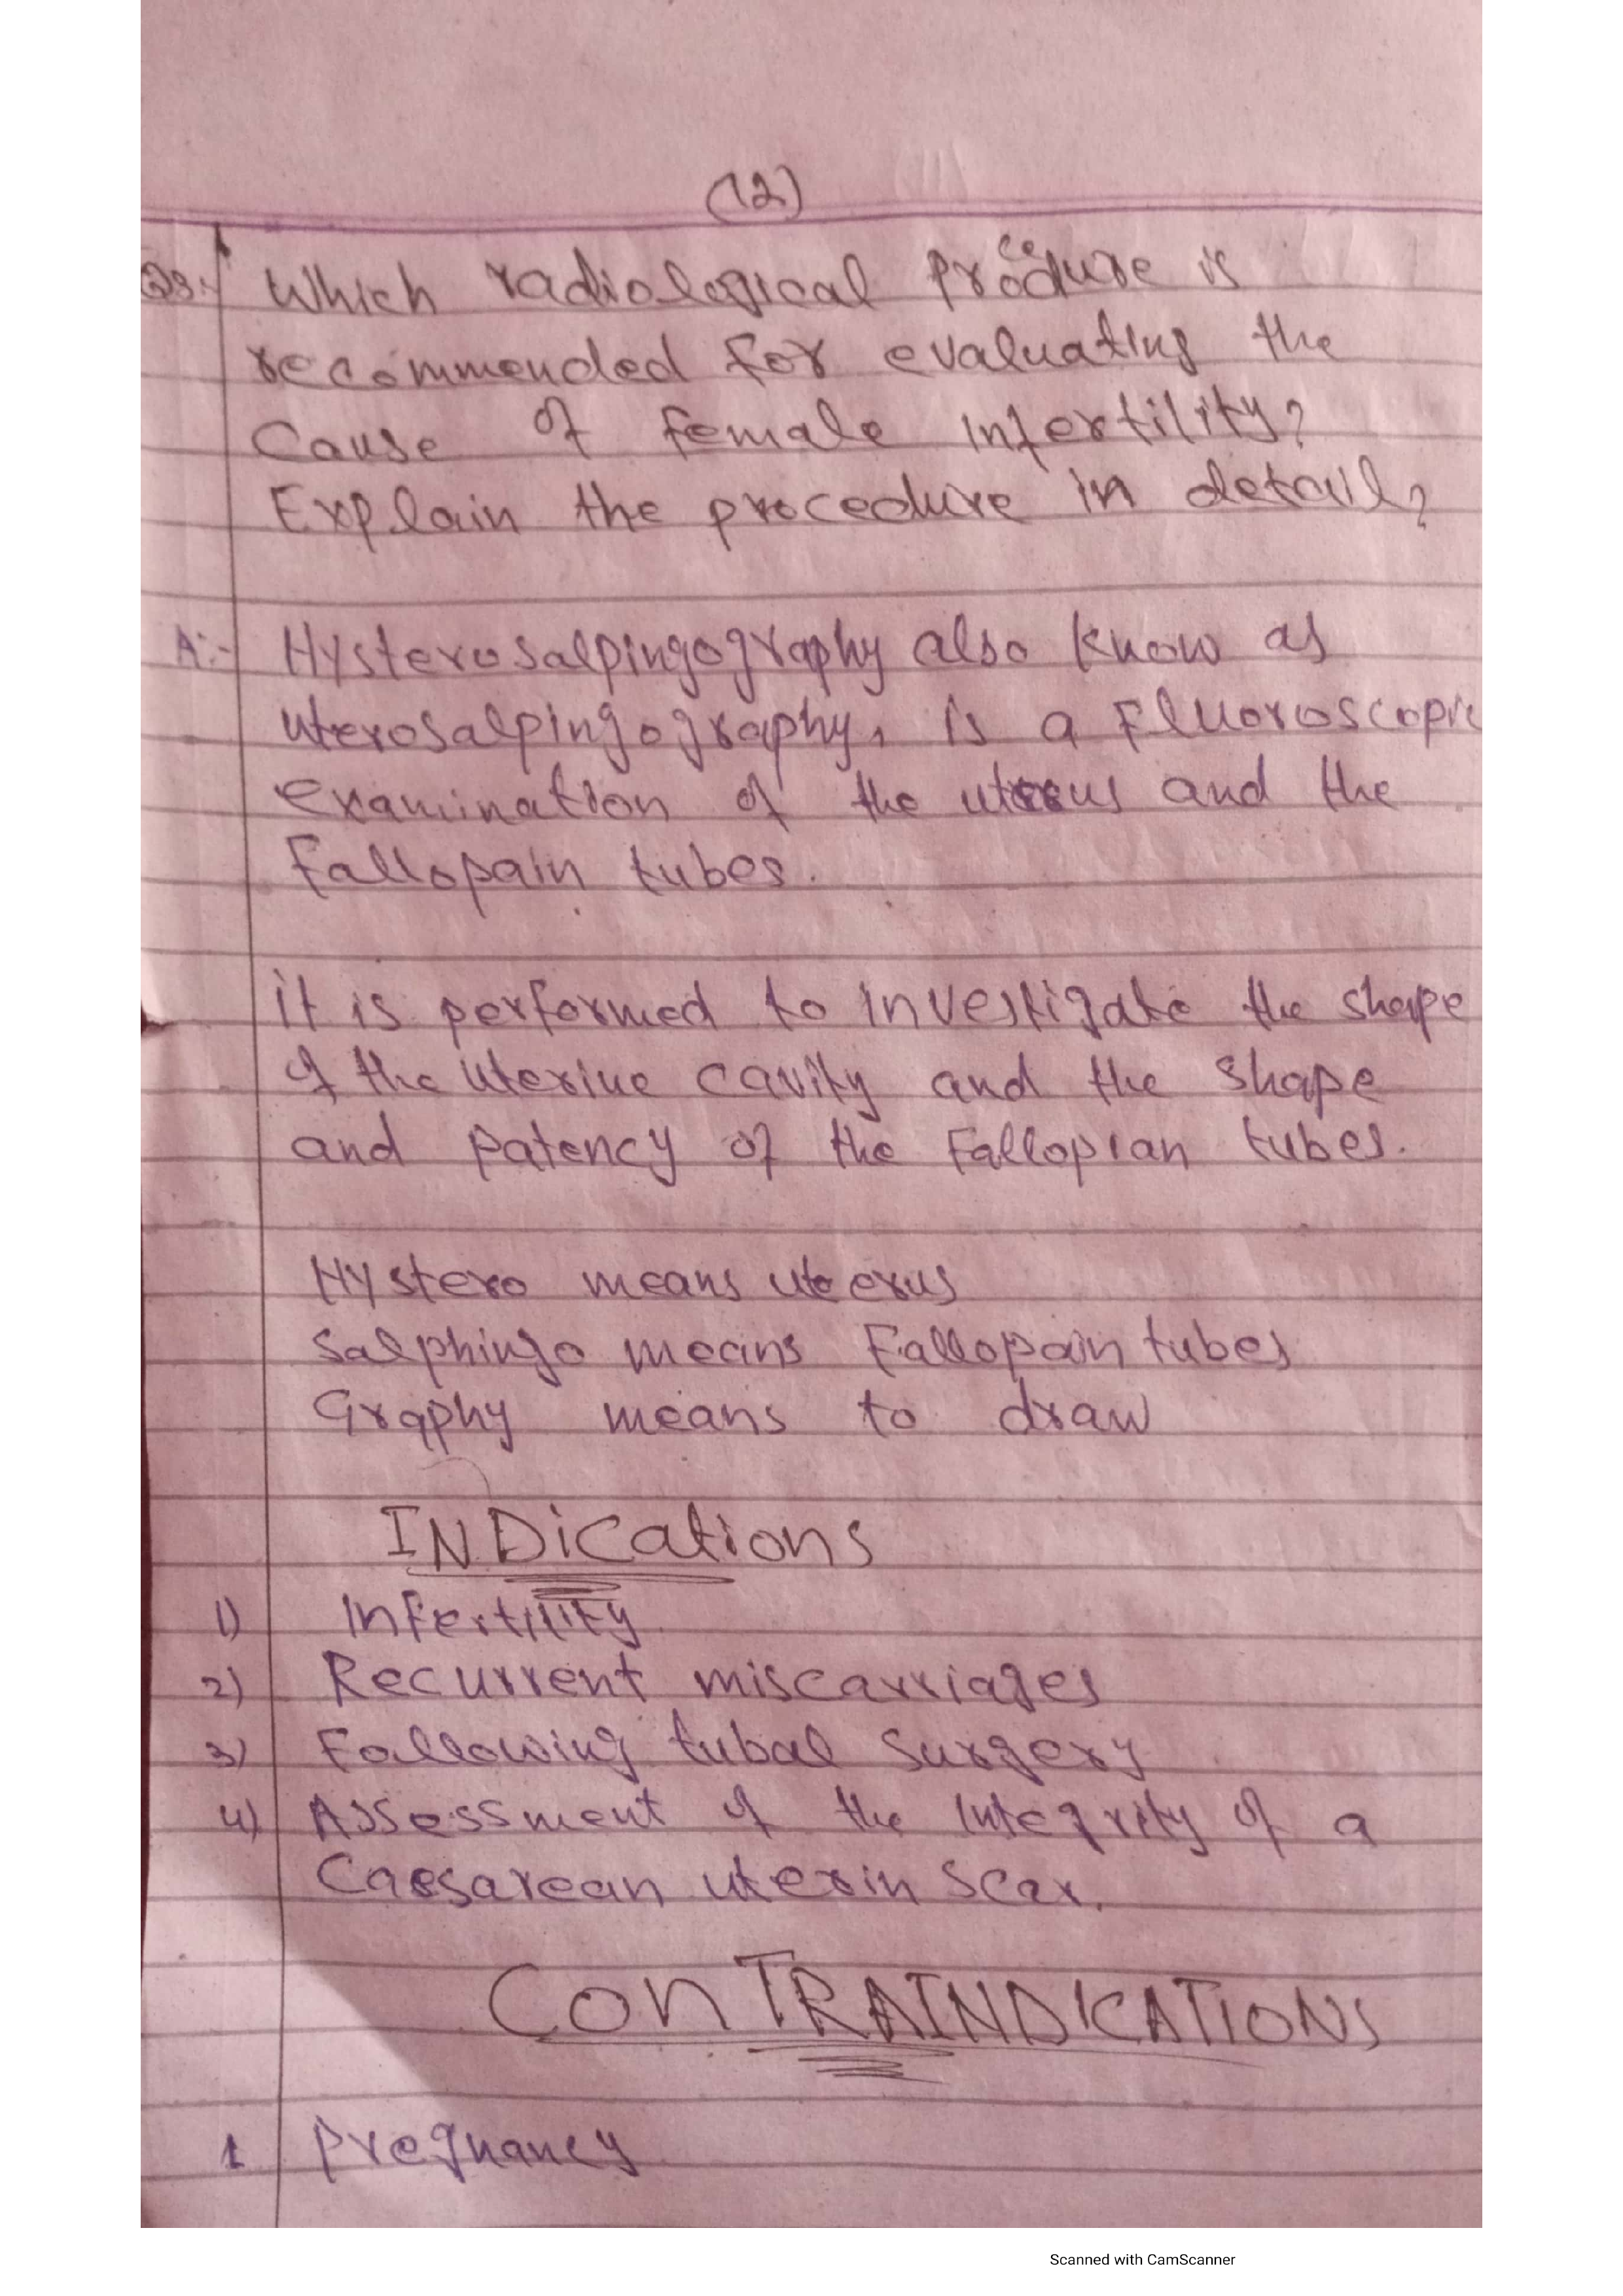 (12)
Q3:- Which radiological proceduse is
recommended for evaluating the
Cause of female infertility?
Explain the procedure in detail?
A:- Hysterosalpingography also know as
uterosalpingography, is a Fluoroscopic
examination of the uterus and the
Fallopain tubes.
it is performed to investigate the shape
of the uterine cavity and the shape
and patency of the Fallopian tubes.
Hystero means uterus
Salphingo means Fallopain tubes
Graphy means to draw
INDications
1) Infertility
2) Recurrent miscarriages
3) Following tubal surgery
4) Assessment of the integrity of a
Caesarean uterin scar.
ConTRAINDICATIONS
1 Pregnancy
Scanned with CamScanner